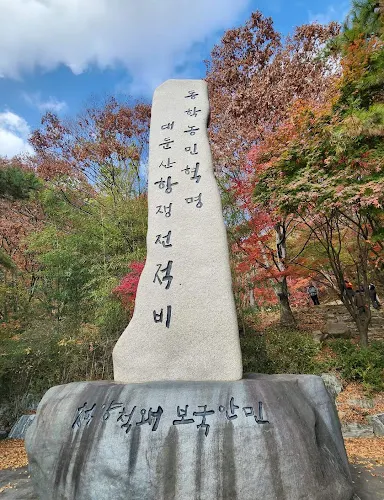 동학농민혁명
대둔산항쟁전적비
척양척왜 보국안민